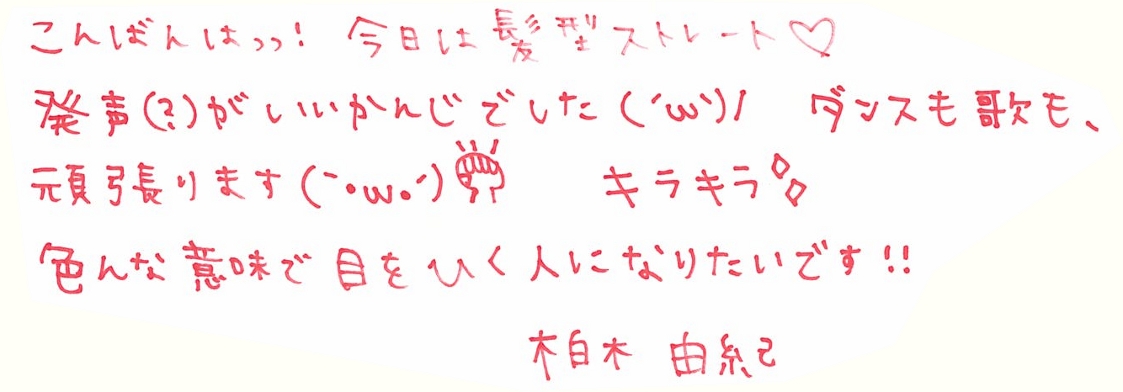 こんばんはっっ! 今日は髪型ストレート♡
発声(?)がいいかんじでした(´ω`)/ ダンスも歌も、
頑張ります(｀・ω・´)✊ キラキラ◇◇
色んな意味で目をひく人になりたいです!!
柏木 由紀